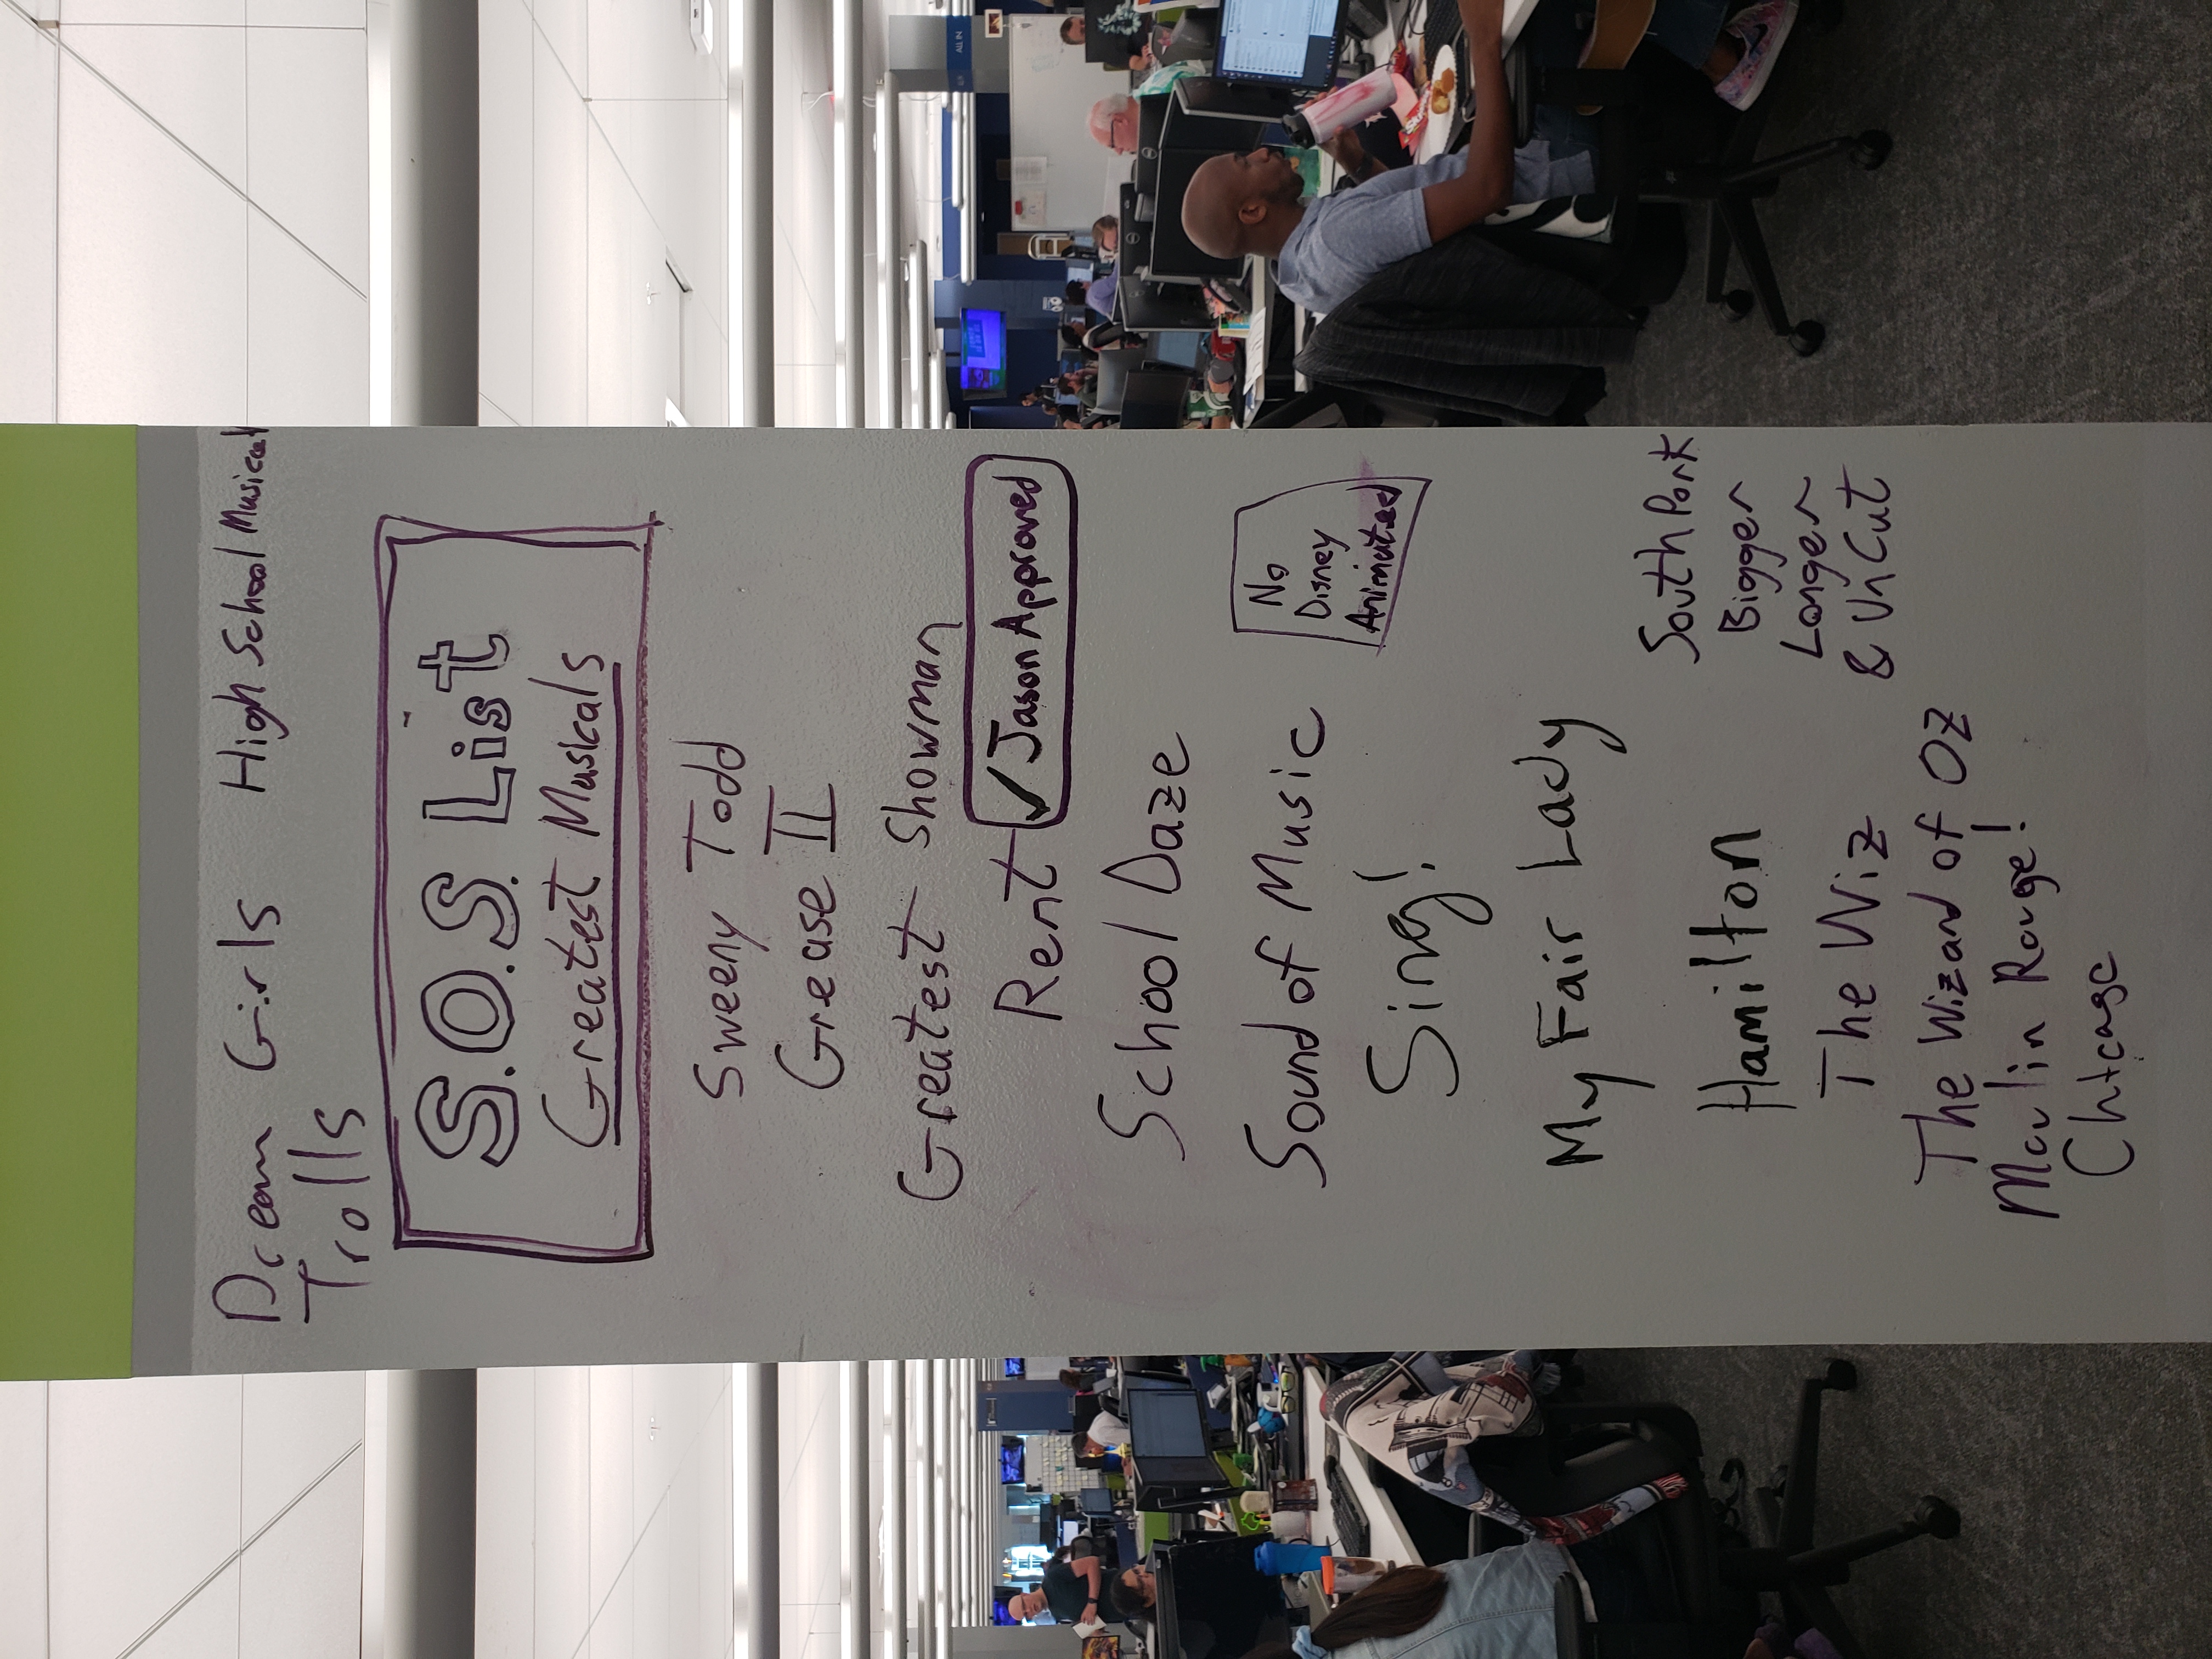 Dream Girls
High School Musical
Trolls
S.O.S. List
Greatest Musicals
Sweeny Todd
Grease II
Greatest Showman
Rent
✓ Jason Approved
School Daze
Sound of Music
No
Disney
Animated
Sing!
My Fair Lady
Hamilton
South Park
Bigger
Longer
& UnCut
The Wiz
The Wizard of Oz
Moulin Rouge!
Chicago
ALL IN